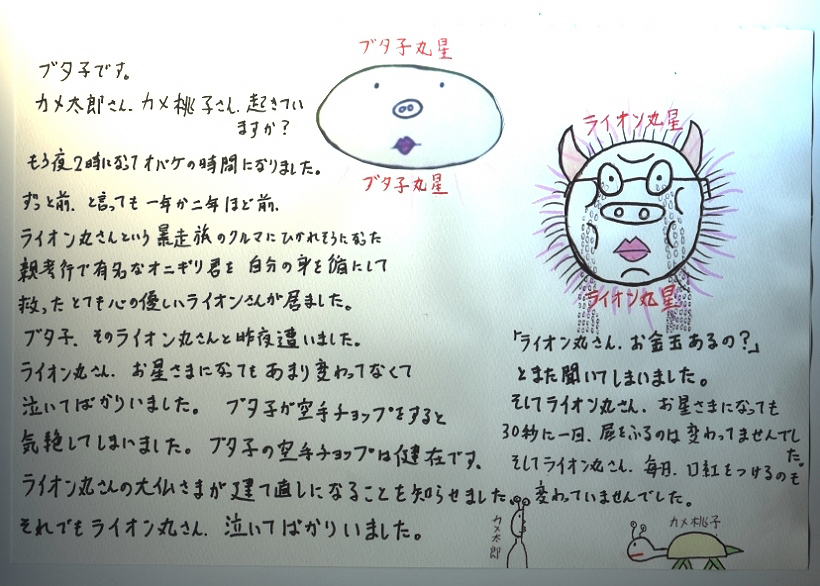 ブタ子丸星
ブタ子丸星
ブタ子です。
カメ太郎さん、カメ桃子さん、起きてい
ますか?
もう夜2時になってオバケの時間になりました。
ずっと前、と言っても一年か二年ほど前、
ライオン丸さんという暴走族のクルマにひかれそうになった
親孝行で有名なオニギリ君を 自分の身を にして
救ったとても心の優しいライオンさんが居ました。
ブタ子、そのライオン丸さんと昨夜遭いました。
ライオン丸さん、お星さまになってもあまり変わってなくて
泣いてばかりいました。 ブタ子が空手チョップをすると
気絶してしまいました。ブタ子の空手チョップは健在です。
ライオン丸さんの大仏さまが建て直しになることを知らせました。
それでもライオン丸さん、泣いてばかりいました。
ライオン丸星
ライオン丸星
「ライオン丸さん、お金玉あるの?」
とまた聞いてしまいました。
そしてライオン丸さん、お星さまになっても
30秒に一回、屁をふるのは変わってませんでし
た。
そしてライオン丸さん、毎日、口紅をつけるのも
変わっていませんでした。
カメ太郎
カメ桃子